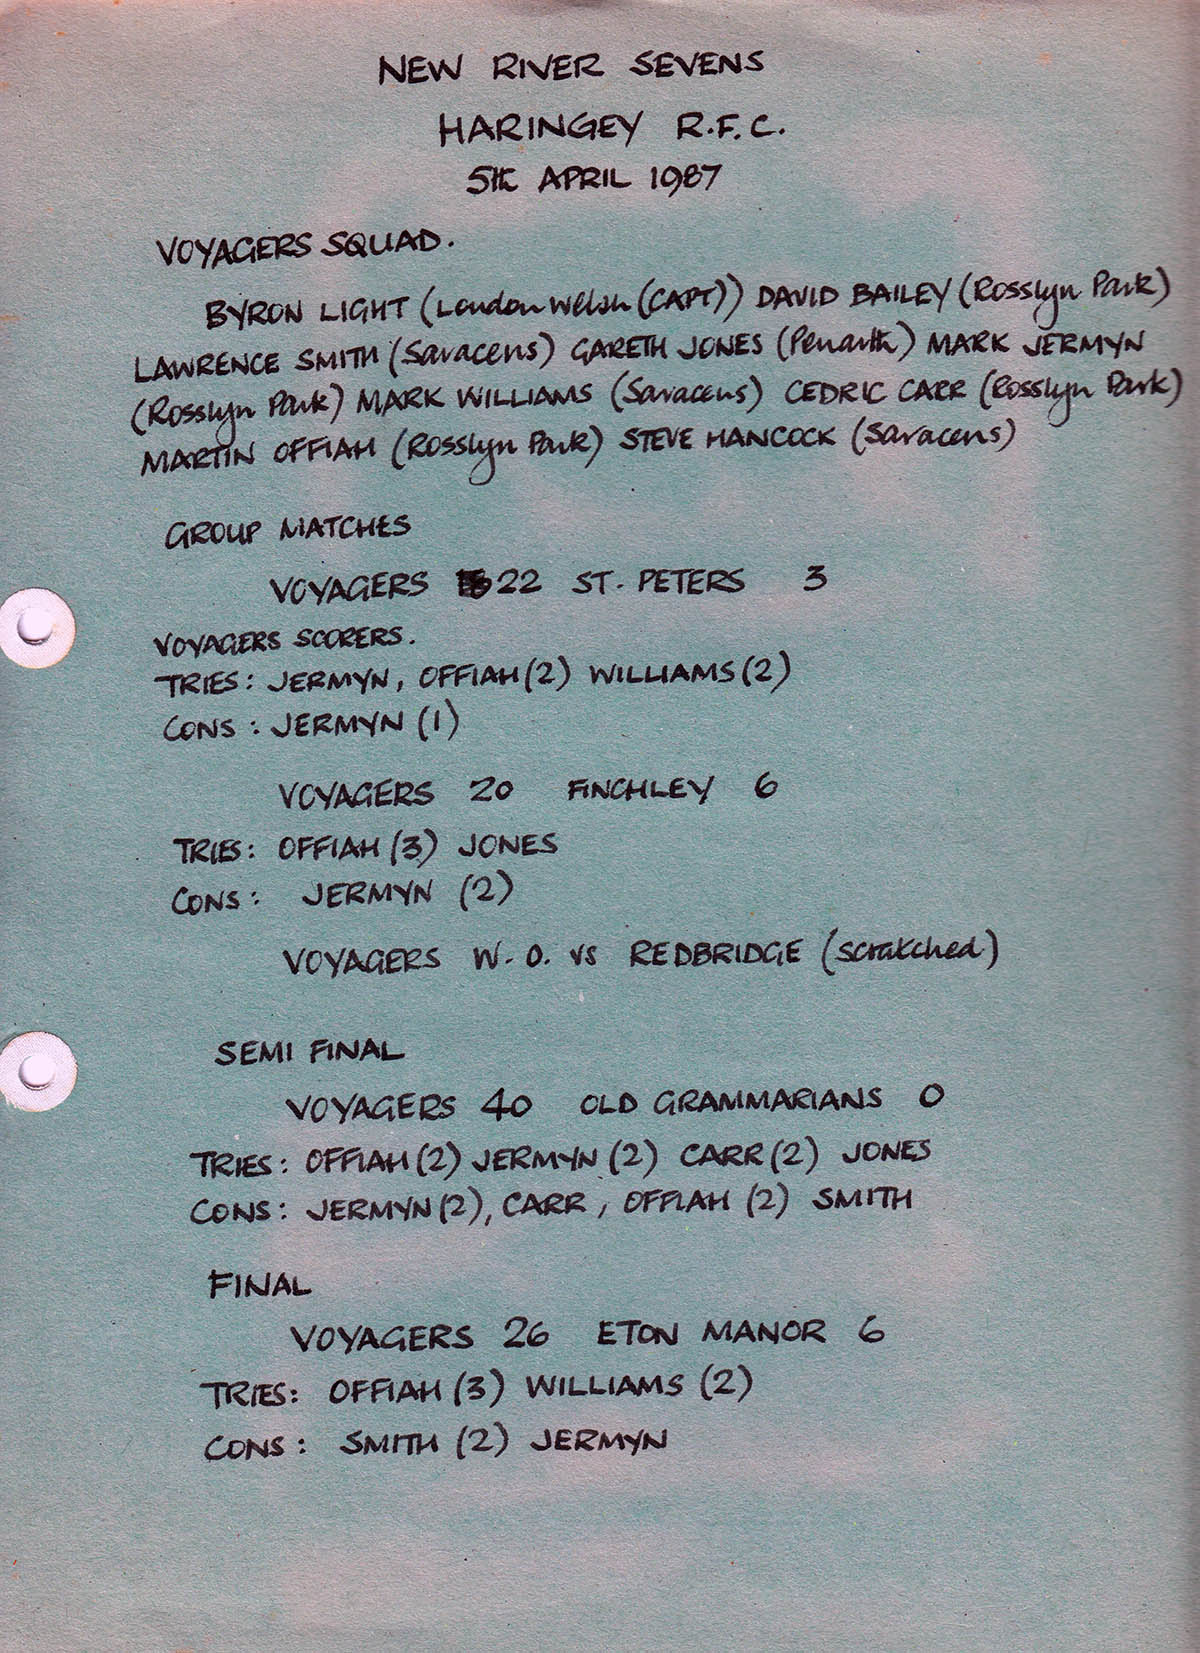 NEW RIVER SEVENS
HARINGEY R.F.C.
5th APRIL 1987
VOYAGERS SQUAD.
BYRON LIGHT (London Welsh (CAPT)) DAVID BAILEY (Rosslyn Park)
LAWRENCE SMITH (Saracens) GARETH JONES (Penarth) MARK JERMYN
(Rosslyn Park) MARK WILLIAMS (Saracens) CEDRIC CARR (Rosslyn Park)
MARTIN OFFIAH (Rosslyn Park) STEVE HANCOCK (Saracens)
GROUP MATCHES
VOYAGERS 22 ST. PETERS 3
VOYAGERS SCORERS.
TRIES: JERMYN, OFFIAH (2) WILLIAMS (2)
CONS: JERMYN (1)
VOYAGERS 20 FINCHLEY 6
TRIES: OFFIAH (3) JONES
CONS: JERMYN (2)
VOYAGERS W.O. vs REDBRIDGE (scratched)
SEMI FINAL
VOYAGERS 40 OLD GRAMMARIANS 0
TRIES: OFFIAH (2) JERMYN (2) CARR (2) JONES
CONS: JERMYN (2), CARR, OFFIAH (2) SMITH
FINAL
VOYAGERS 26 ETON MANOR 6
TRIES: OFFIAH (3) WILLIAMS (2)
CONS: SMITH (2) JERMYN